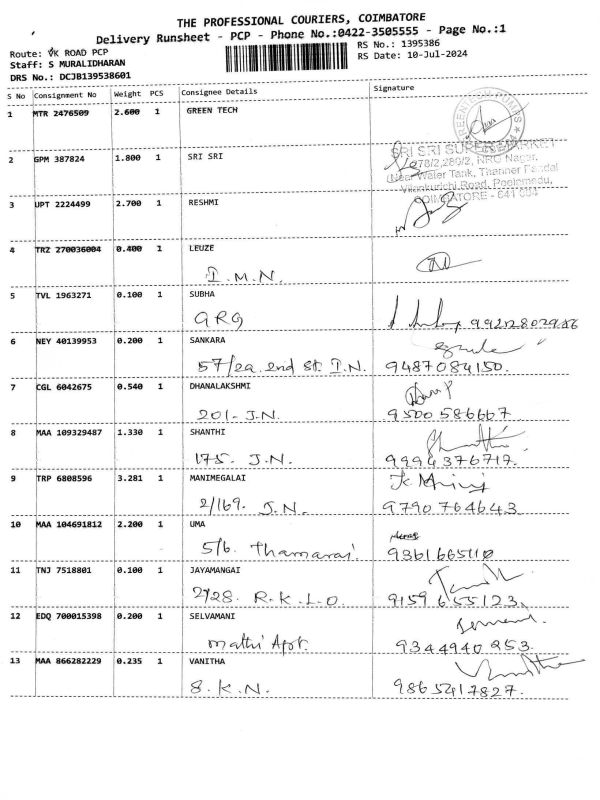 THE PROFESSIONAL COURIERS, COIMBATORE
Delivery Runsheet - PCP - Phone No.:0422-3505555 - Page No.:1
Route: VK ROAD PCP
RS No.: 1395386
Staff: S MURALIDHARAN
RS Date: 10-Jul-2024
DRS No.: DCJB139538601
S No Consignment No Weight PCS Consignee Details Signature
1 MTR 2476509 2.600 1 GREEN TECH
2 GPM 387824 1.800 1 SRI SRI
SRI SRI SUPER MARKET
278/2,280/2, NRG Nagar,
(Near Water Tank, Thanner Pandal
Vilankurichi Road, Peelamedu,
COIMBATORE - 641 004
3 UPT 2224499 2.700 1 RESHMI
4 TRZ 270036004 0.400 1 LEUZE
I.M.N.
5 TVL 1963271 0.100 1 SUBHA
GRG
6 NEY 40139953 0.200 1 SANKARA
57/2a 2nd St. I.N. 9487084150.
7 CGL 6042675 0.540 1 DHANALAKSHMI
201- J.N. 9500586667
8 MAA 109329487 1.330 1 SHANTHI
175. J.N. 9994376717.
9 TRP 6808596 3.281 1 MANIMEGALAI
2/169. J.N. 9790764643
10 MAA 104691812 2.200 1 UMA
5/6. Thamarai 9361665110
11 TNJ 7518801 0.100 1 JAYAMANGAI
2/28. R.K.L.O. 9159655123.
12 EDQ 700015398 0.200 1 SELVAMANI
Mathi Apt. 9344940253.
13 MAA 866282229 0.235 1 VANITHA
8. K.N. 9865417827.